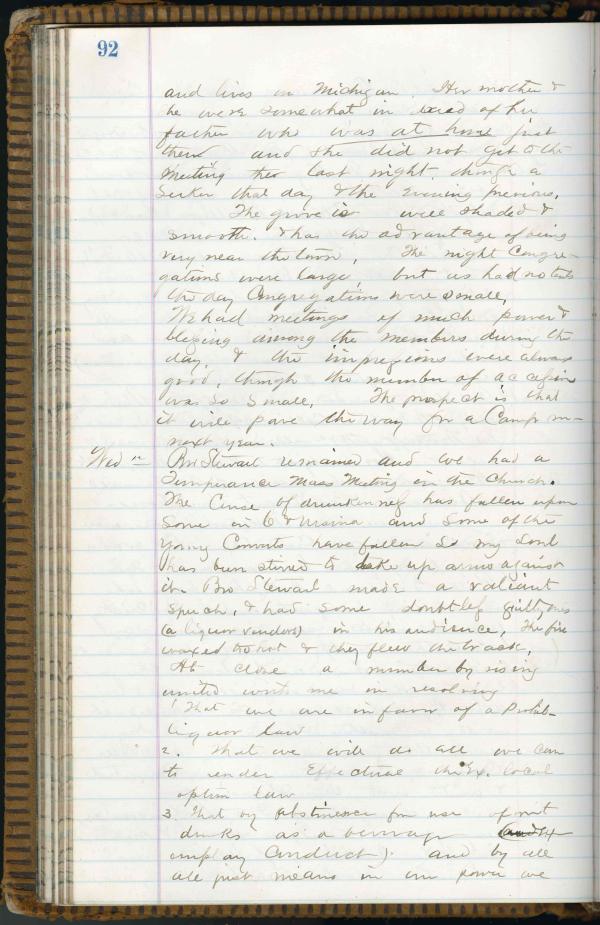 92
and lives in Michigan. Her mother &
he were somewhat in dread of her
father who was at home just
then and she did not get to the
Meeting last night, though a
Seeker that day & the evening previous.
The grove is well shaded &
smooth. & has the advantage of being
very near the town, The night Congre-
gations were large, but as had
the day Congregations were small,
We had meetings of much power &
blessing among the members during the
day, & the impressions were always
good, though the number of accessions
was so small, The prospect is that
it will pave the way for a Camp m—
next year.
Wed 12 Bro Stewart remained and we had a
Temperance Mass Meeting in the Church.
The Curse of drunkenness has fallen upon
some in and some of the
young Converts have fallen So my Soul
has been stirred to take up arms against
it. Bro Stewart made a valiant
speech, & had some doubtless guilty ones
(a liquor vendors) in his audience, The fire
waxed too hot & they flew the track,
At close a number by rising
united with me in resolving
1 That we are in favor of a Prohib-
liquor law
2. That we will do all we can
to render Effectual the local
option law
3. That by abstinence from use of
drinks as a beverage
Conduct). and by all
all just means in our power we